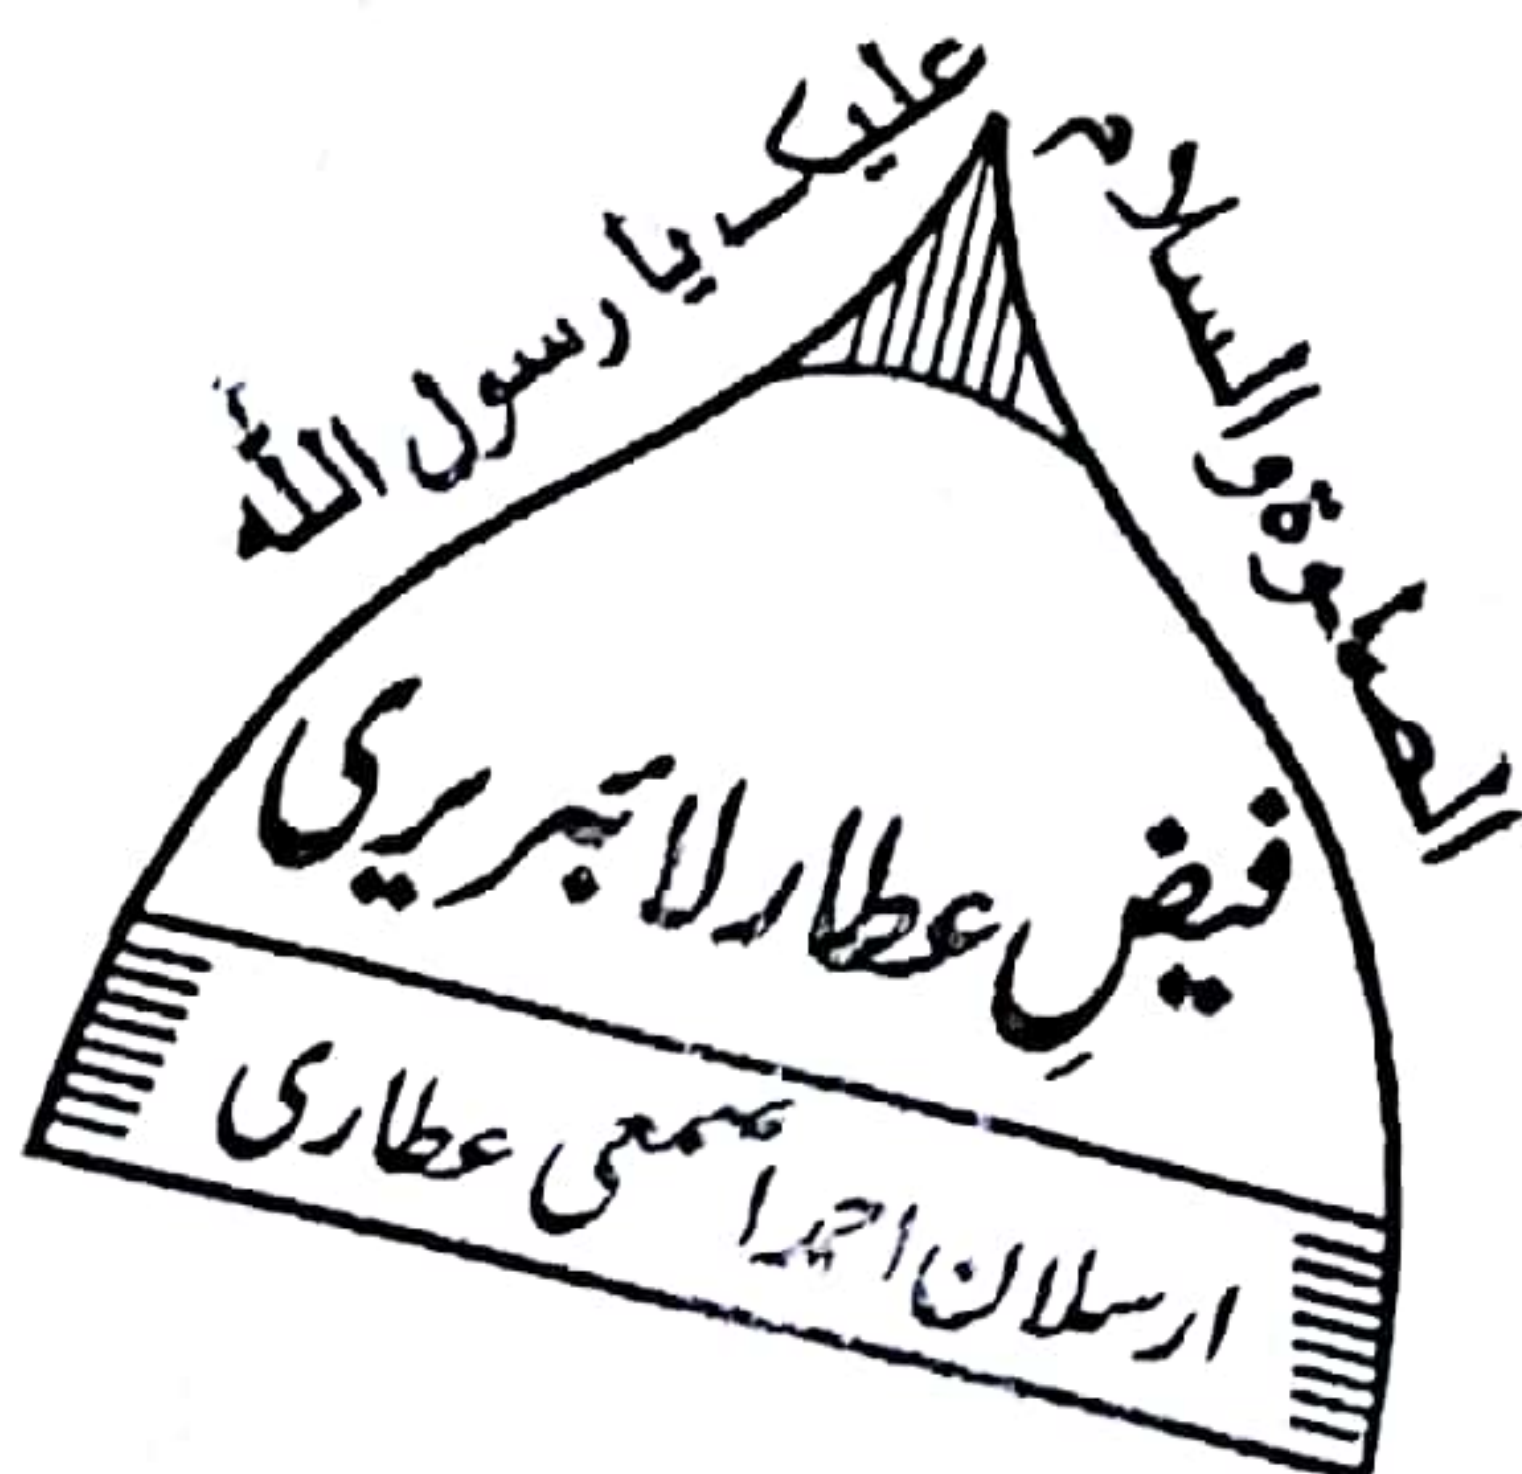 الصلوٰۃ والسلام علیک یا رسول اللہ
فیضِ عطار لائبریری
ارسلان احمد اصمعی عطاری